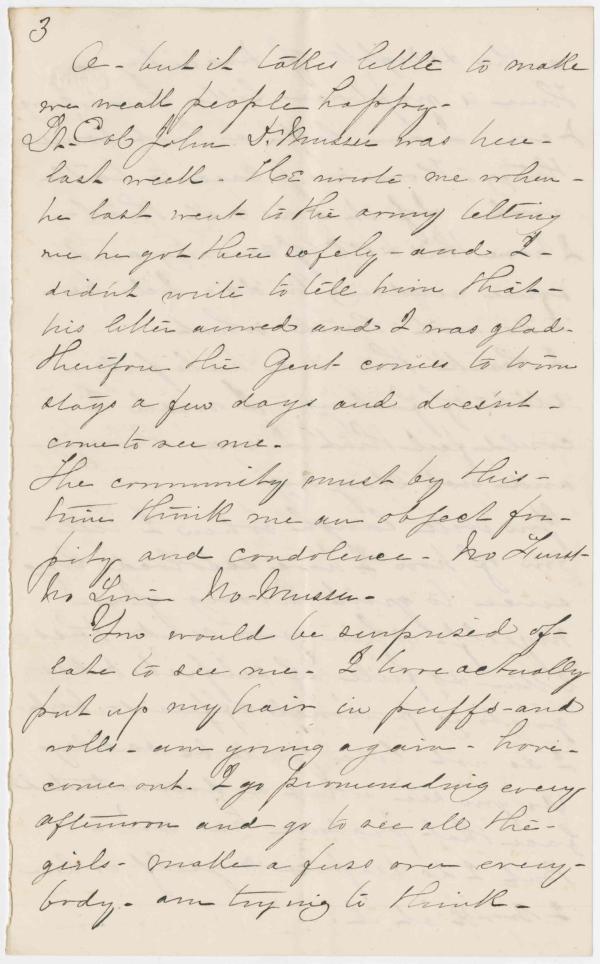 3
O - but it takes little to make
we weak people happy -
Lt. Col John D. Musser was here -
last week - He wrote me when -
he last went to the army telling
me he got there safely - and I -
didn't write to tell him that -
his letter arrived and I was glad -
therefore the Gent comes to town
stays a few days and doesn't -
come to see me -
The community must by this -
time think me an object for -
pity and condolence - No Furst -
No No - Musser -
You would be surprised of -
late to see me - I have actually
put up my hair in puffs - and
rolls - am young again - have -
come out - I go promenading every
afternoon and go to see all the -
girls - make a fuss over every -
body - am trying to think -